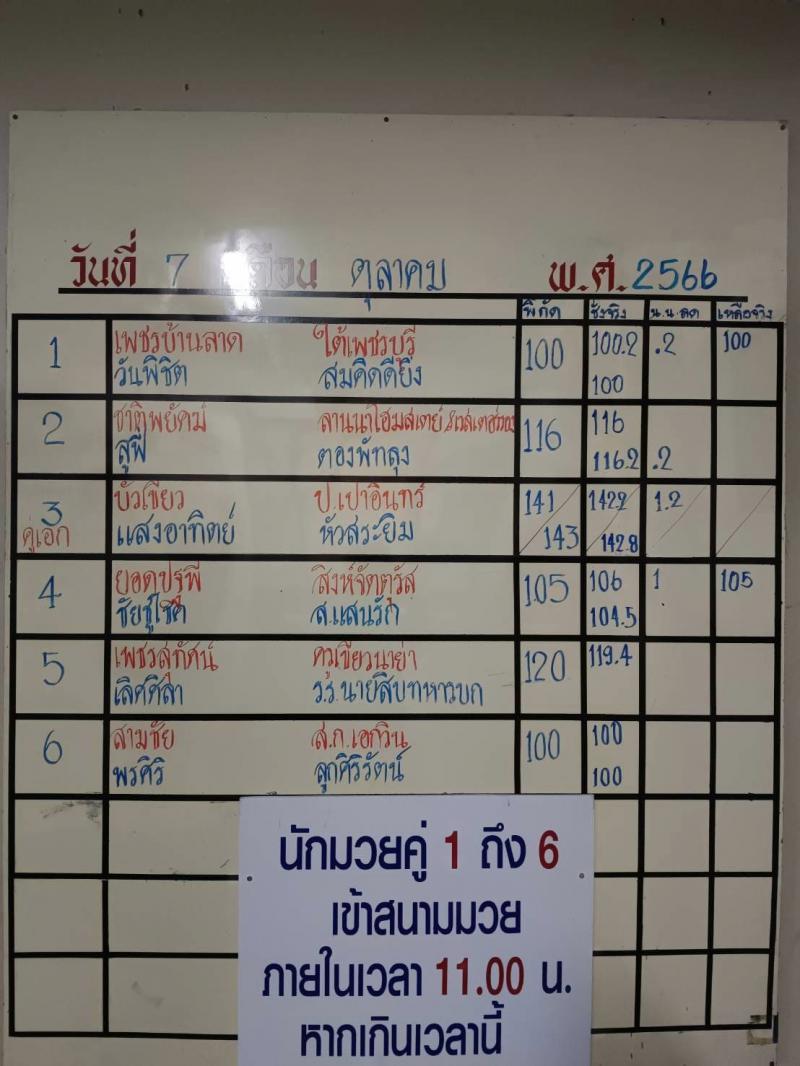 วันที่ 7 เดือน ตุลาคม พ.ศ. 2566
พิกัด ชั่งจริง น.น.ลด เหลือจริง
1 เพชรบ้านลาด ใต้เพชรบุรี 100 100.2 .2 100
วันพิชิต สมคิดดียิ่ง 100
2 ชาติพยัคฆ์ ลานนาโฮมสเตย์ 116 116
สูฟี ตองพัทลุง 116.2 .2
3 บัวเขียว ป.เปาอินทร์ 141 142.2 1.2
คู่เอก แสงอาทิตย์ หัวสระยิม 143 142.8
4 ยอดปฐพี สิงห์จัตุรัส 105 106 1 105
ชัยชูโชค ส.แสนรัก 104.5
5 เพชรสุทัศน์ ครูเขียวนาย่า 120 119.4
เลิศศิลา ร.ร.นายสิบทหารบก
6 สามชัย ส.ก.เอกวิน 100 100
พรศิริ ลูกศิริรัตน์ 100
นักมวยคู่ 1 ถึง 6
เข้าสนามมวย
ภายในเวลา 11.00 น.
หากเกินเวลานี้